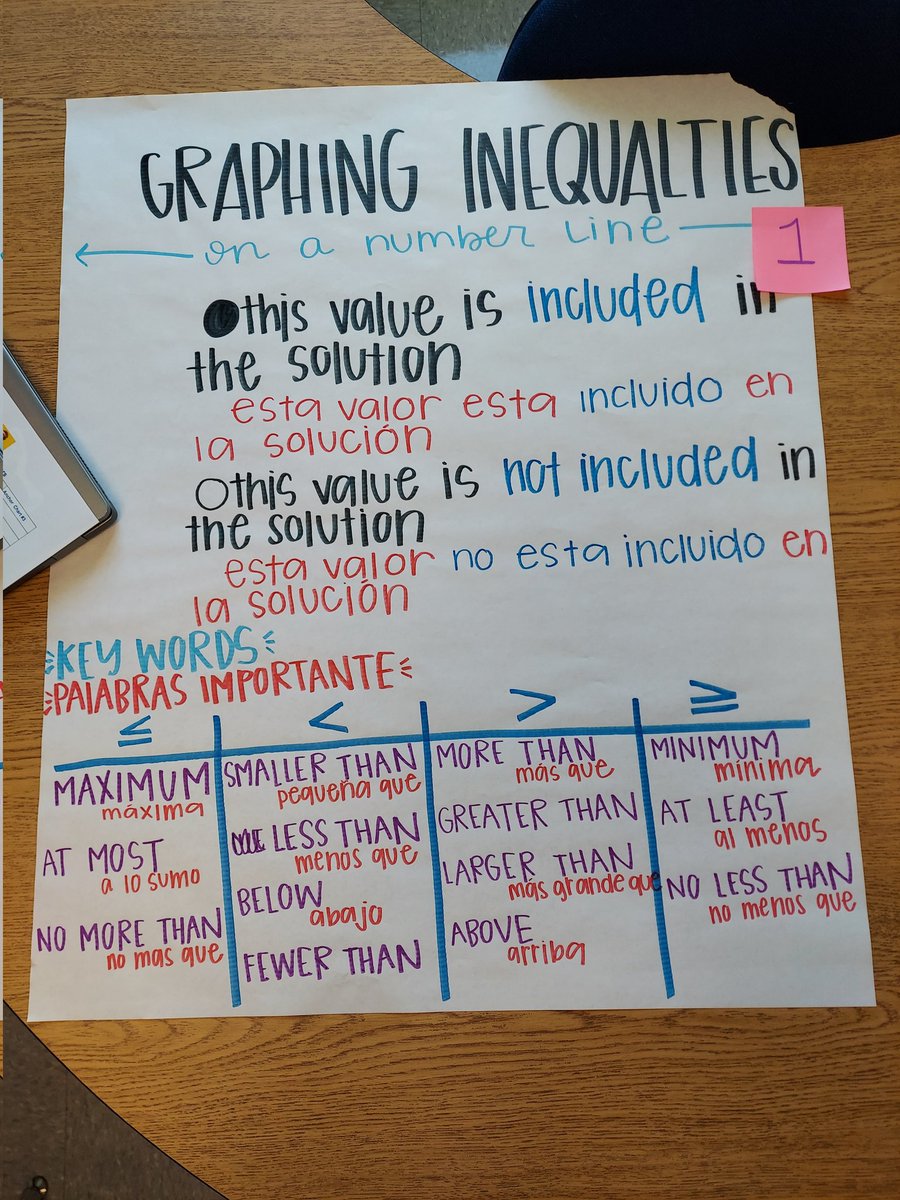 GRAPHING INEQUALTIES
on a number line
1
this value is included in
the solution
esta valor esta incluido en
la solución
this value is not included in
the solution
esta valor no esta incluido en
la solución
KEY WORDS
PALABRAS IMPORTANTE
≤ < > ≥
MAXIMUM
máxima
AT MOST
a lo sumo
NO MORE THAN
no mas que
SMALLER THAN
pequeña que
LESS THAN
menos que
BELOW
abajo
FEWER THAN
MORE THAN
más que
GREATER THAN
LARGER THAN
más grande que
ABOVE
arriba
MINIMUM
mínima
AT LEAST
al menos
NO LESS THAN
no menos que